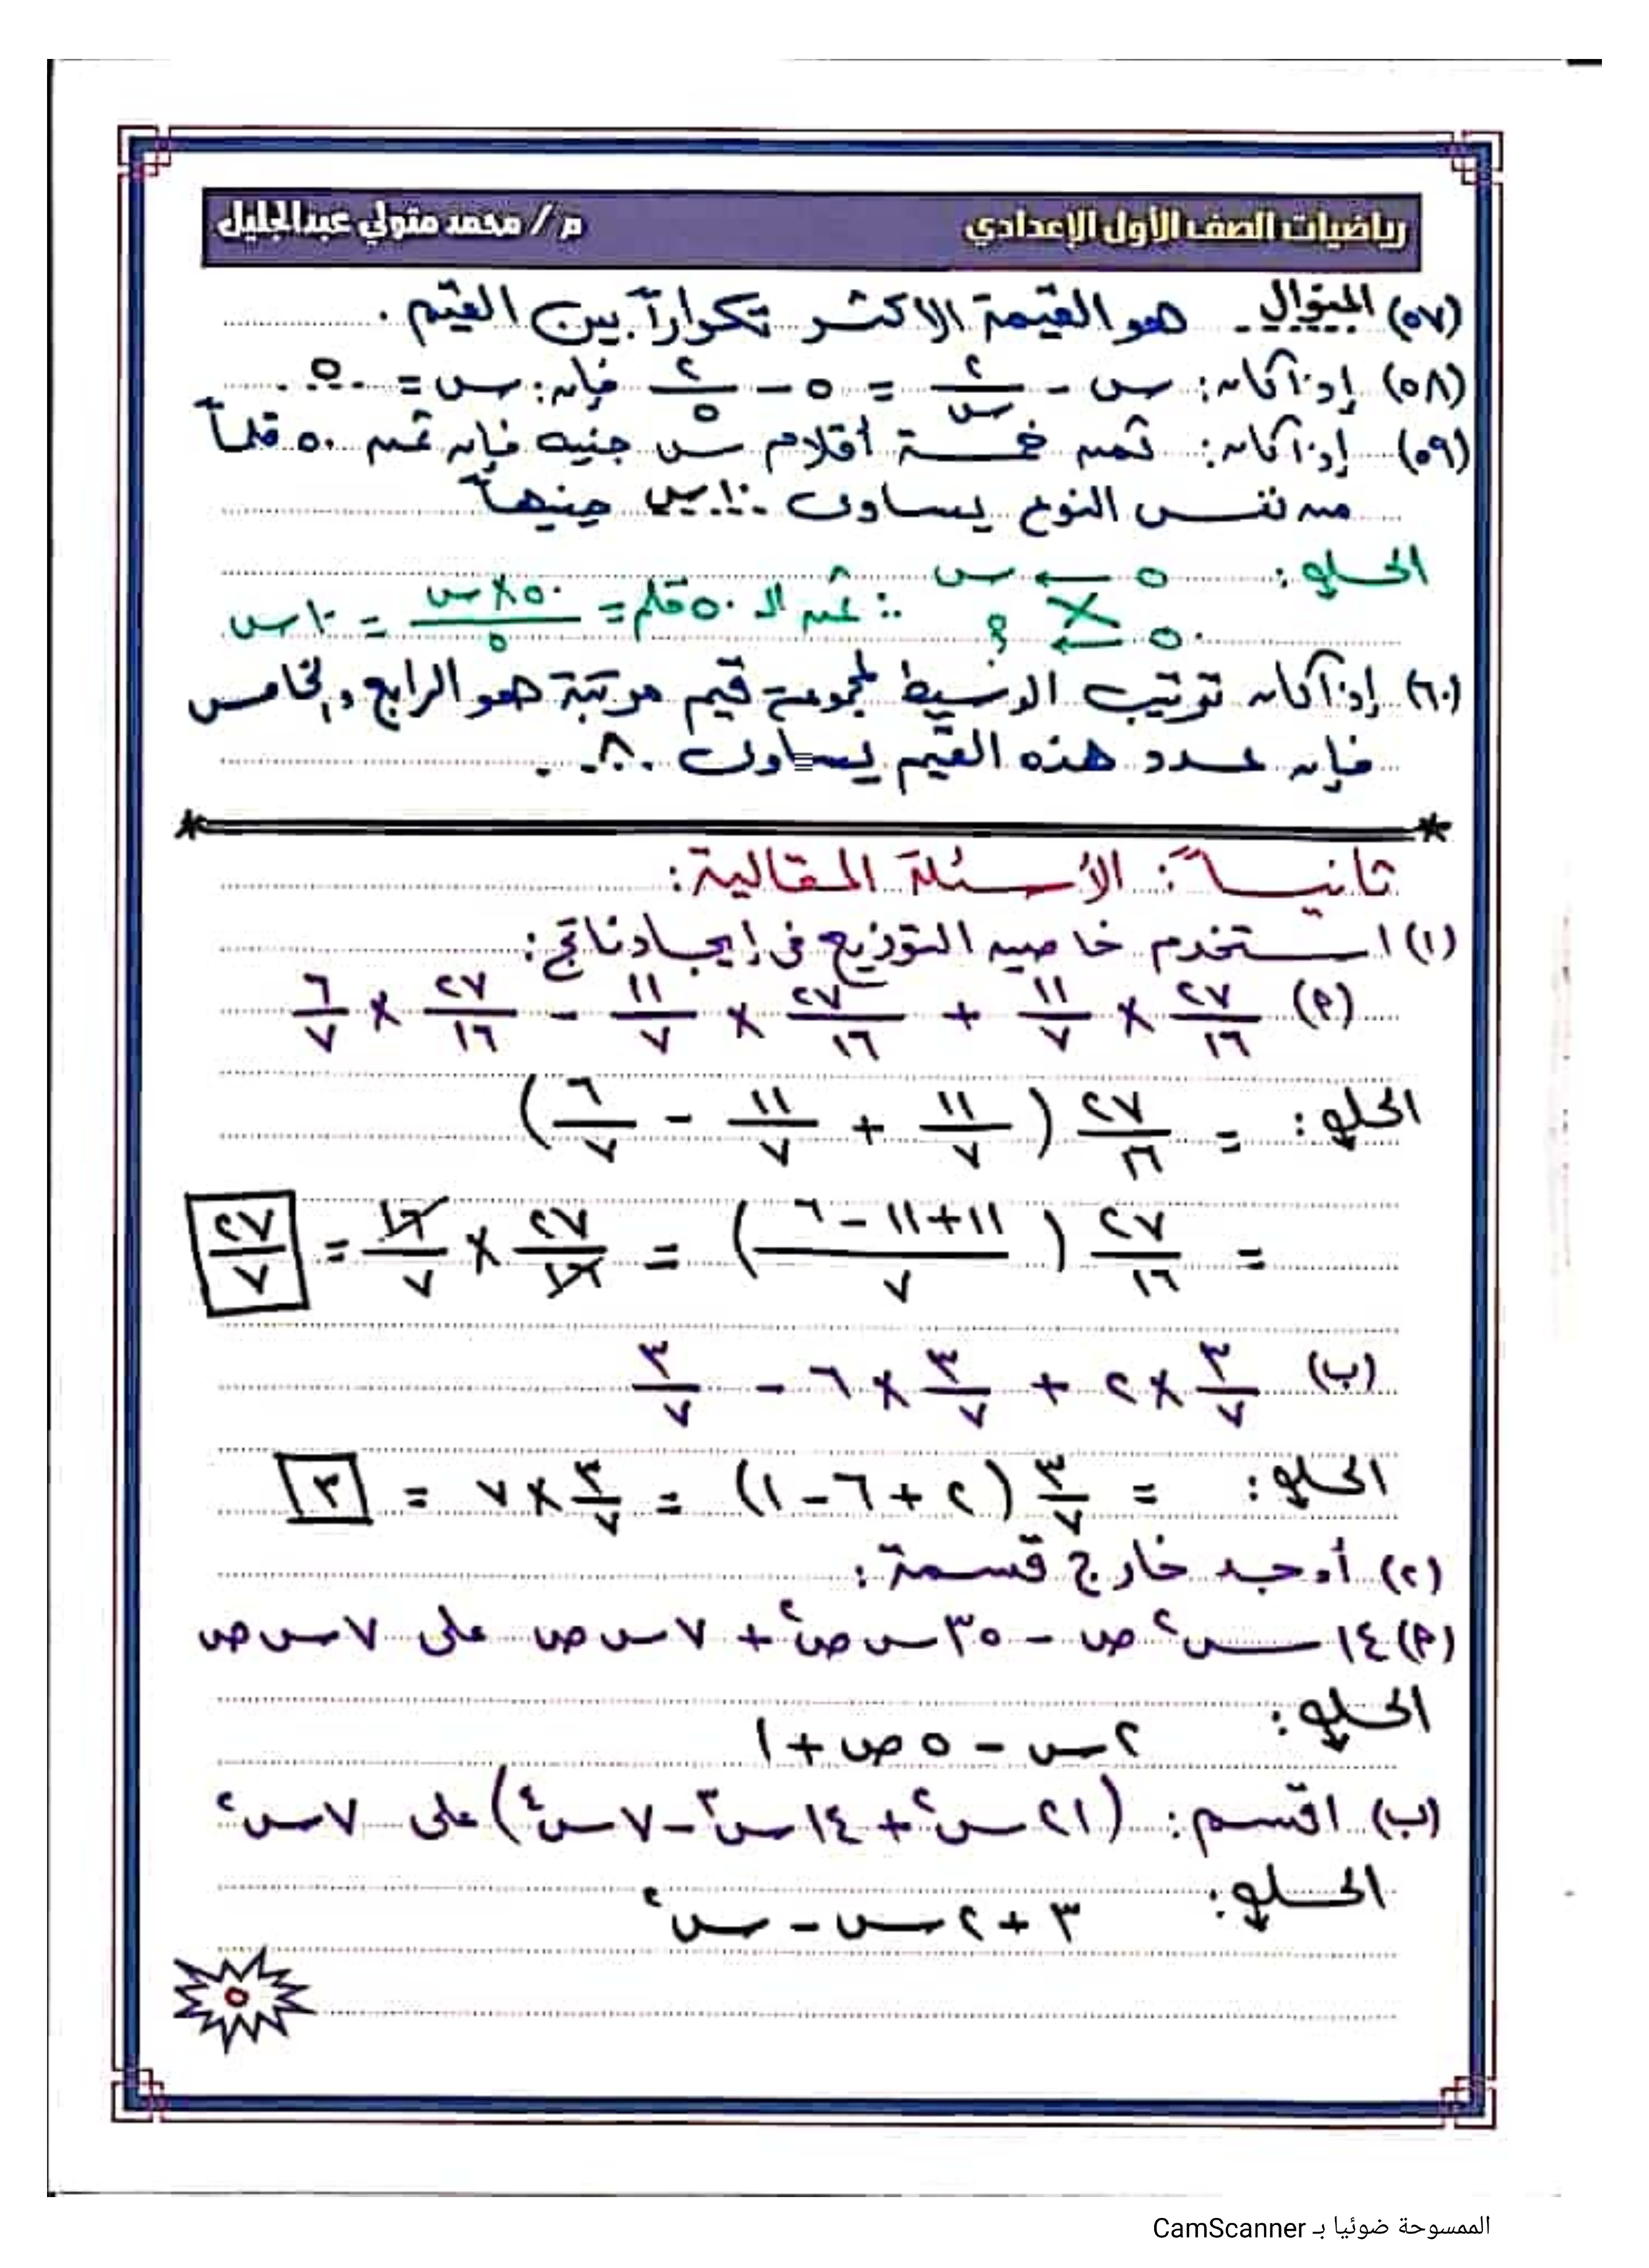 رياضيات الصف الأول الإعدادي م / محمد متولي عبدالجليل
(٥٧) المنوال هو القيمة الاكثر تكراراً بين القيم .
(٥٨) إذا كان : س - ٢/س = ٥ - ٢/٥ فإن : س = ٥
(٥٩) إذا كان : ثمن خمسة أقلام س جنيه فإن ثمن ٥٠ قلماً
من نفس النوع يساوى ١٠س جنيهاً
الحل : ٥ ← س ∴ ثمن الـ ٥٠ قلم = ٥٠×س/٥ = ١٠س
٥٠ ← ؟
(٦٠) إذا كان ترتيب الوسيط لمجموعة قيم مرتبة هو الرابع والخامس
فإن عدد هذه القيم يساوى ٨ .
ثانياً : الأسئلة المقالية :
(١) استخدم خاصية التوزيع فى إيجاد ناتج :
(٢) ٢٧/١٦ × ١١/٧ + ٢٧/١٦ × ١١/٧ - ٢٧/١٦ × ٦/٧
الحل : = ٢٧/١٦ (١١/٧ + ١١/٧ - ٦/٧)
= ٢٧/١٦ (١١+١١-٦/٧) = ٢٧/١٦ × ١٦/٧ = ٢٧/٧
(ب) ٣/٧ × ٢ + ٣/٧ × ٦ - ٣/٧
الحل : = ٣/٧ (٢ + ٦ - ١) = ٣/٧ × ٧ = ٣
(٢) أوجد خارج قسمة :
(٢) ١٤س²ص - ٣٥س ص² + ٧س ص على ٧س ص
الحل :
٢س - ٥ص + ١
(ب) اقسم : (٢١س² + ١٤س³ - ٧س⁴) على ٧س²
الحل :
٣ + ٢س - س²
٥
الممسوحة ضوئيا بـ CamScanner